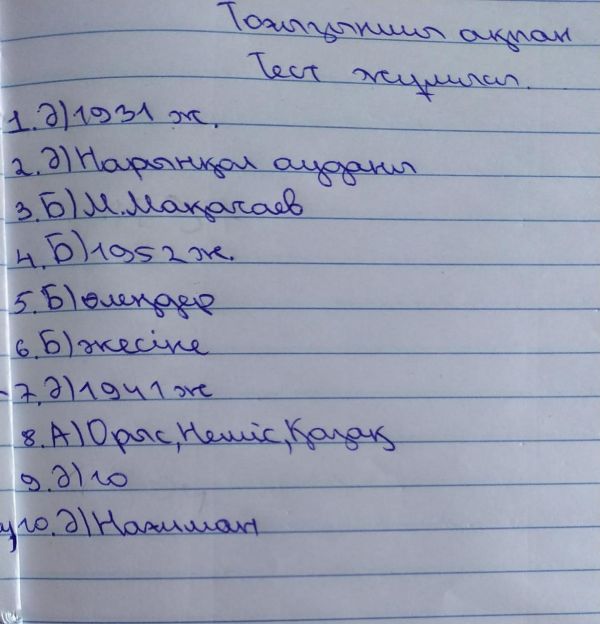 Тоғызыншы ақпан
Тест жұмысы.
1. Ә) 1931 ж.
2. Ә) Нарынқол ауданы
3. Б) М. Мақатаев
4. Б) 1952 ж.
5. Б) өлеңдер
6. Б) әкесіне
7. Ә) 1941 ж
8. А) Орыс, Неміс, Қазақ
9. Ә) 10
10. Ә) Нағиман